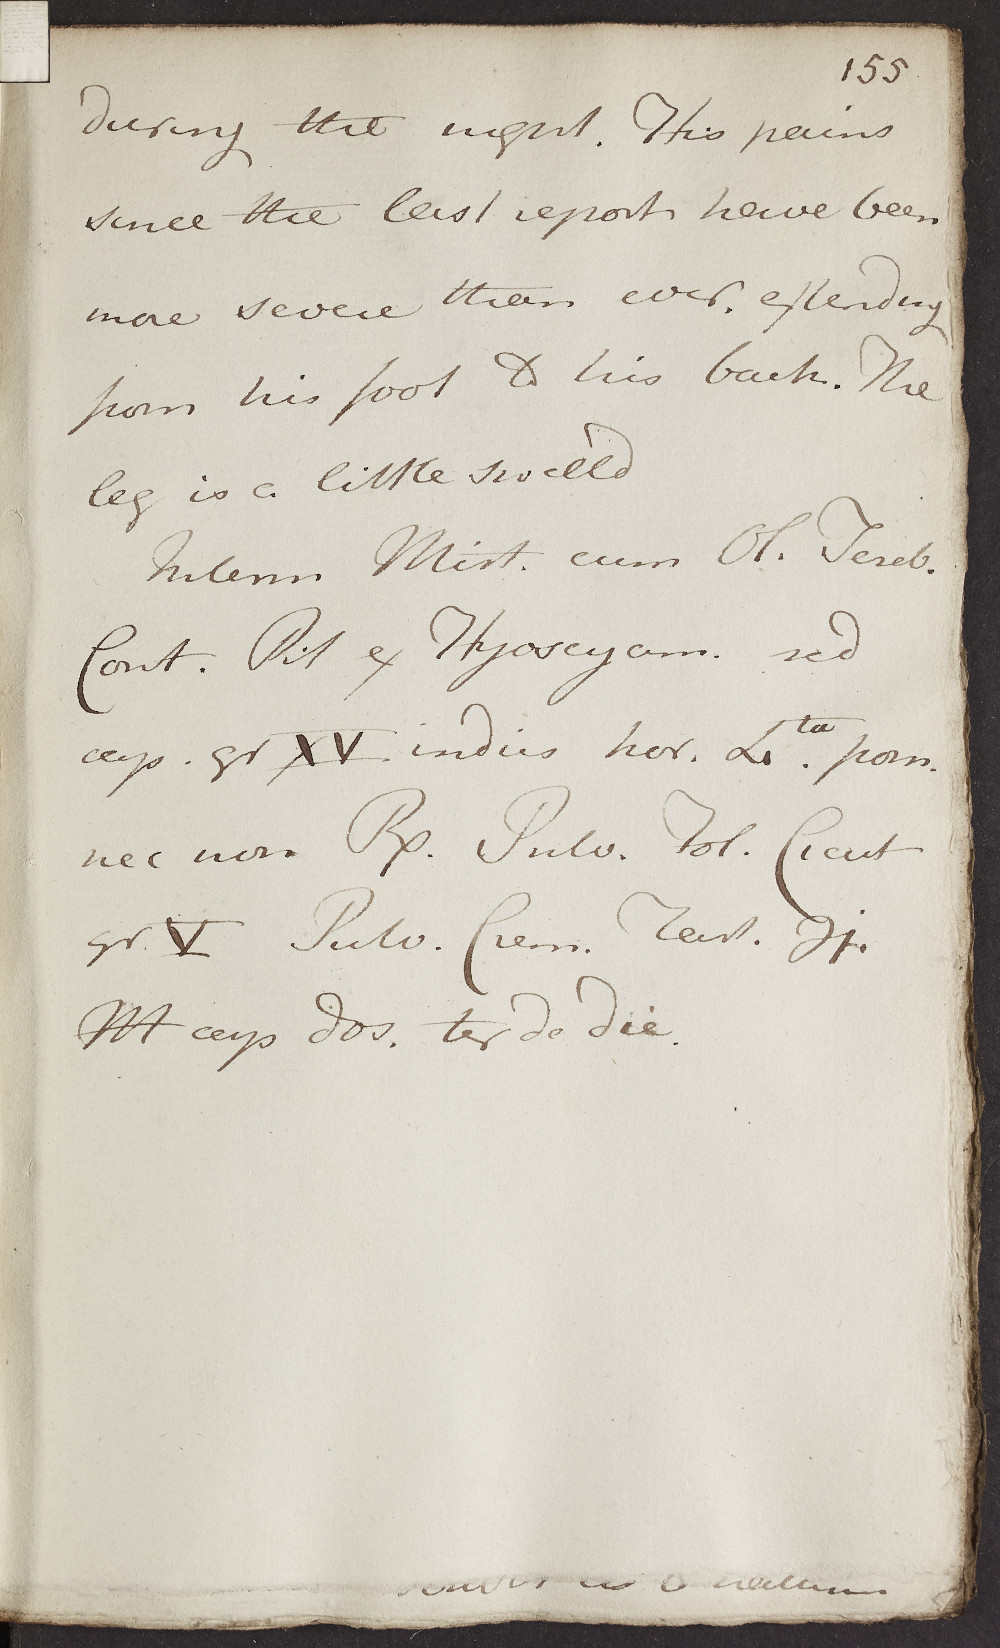 155
during the night. His pains
since the last report have been
more severe than ever, extending
from his foot to his back. The
leg is a little swelld
Mist. cum Ol. Tereb.
Cont. Pil ex Hyoscyam. sed
cap. gr XV indies hor. 4ta. pom.
nec non Rx. Pulv. Fol. Cicut
gr. V Pulv. Crem. Tart. ℈j.
M cap dos. ter de die.